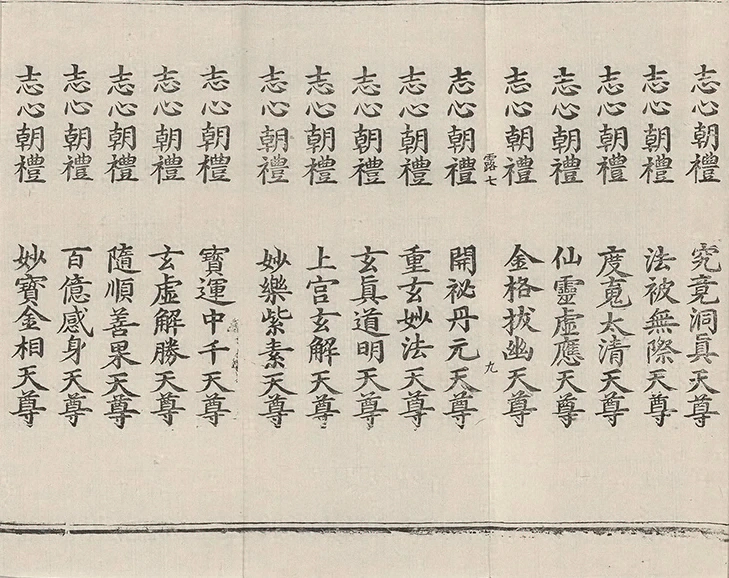 志心朝禮 究竟洞眞天尊
志心朝禮 法被無際天尊
志心朝禮 度䰟太清天尊
志心朝禮 仙靈虛應天尊
志心朝禮 金格拔幽天尊
露七 九
志心朝禮 開祕丹元天尊
志心朝禮 重玄妙法天尊
志心朝禮 玄眞道明天尊
志心朝禮 上宫玄解天尊
志心朝禮 妙樂紫素天尊
志心朝禮 寶運中千天尊
志心朝禮 玄虛解勝天尊
志心朝禮 隨順善果天尊
志心朝禮 百億感身天尊
志心朝禮 妙寶金相天尊